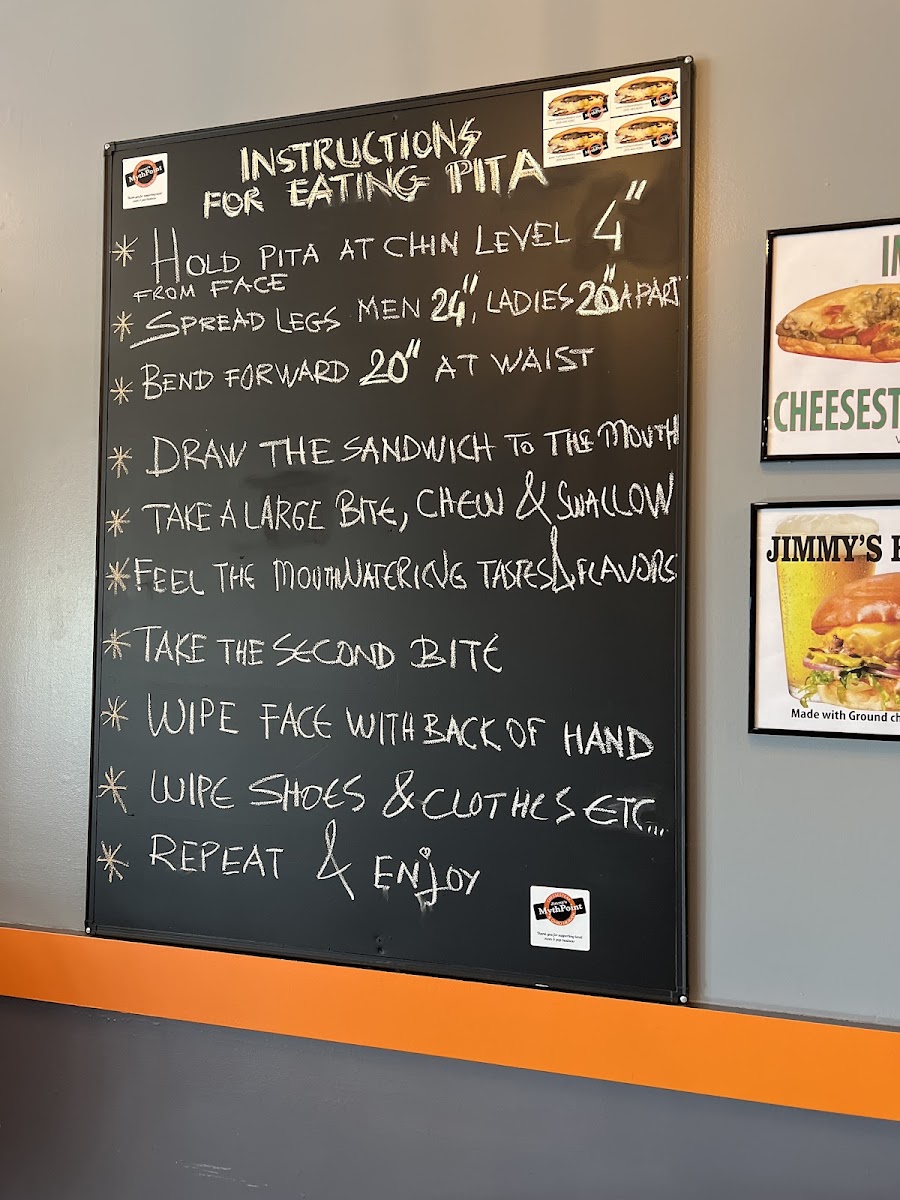 INSTRUCTIONS
FOR EATING PITA
* HOLD PITA AT CHIN LEVEL 4"
FROM FACE
* SPREAD LEGS MEN 24", LADIES 20" APART
* BEND FORWARD 20" AT WAIST
* DRAW THE SANDWICH TO THE MOUTH
* TAKE A LARGE BITE, CHEW & SWALLOW
* FEEL THE MOUTHWATERING TASTES & FLAVORS
* TAKE THE SECOND BITE
* WIPE FACE WITH BACK OF HAND
* WIPE SHOES & CLOTHES ETC...
* REPEAT & ENJOY
MythPoint
Jimmy's
MythPoint
Thank you for supporting local
CHEESEST
JIMMY'S
Made with Ground